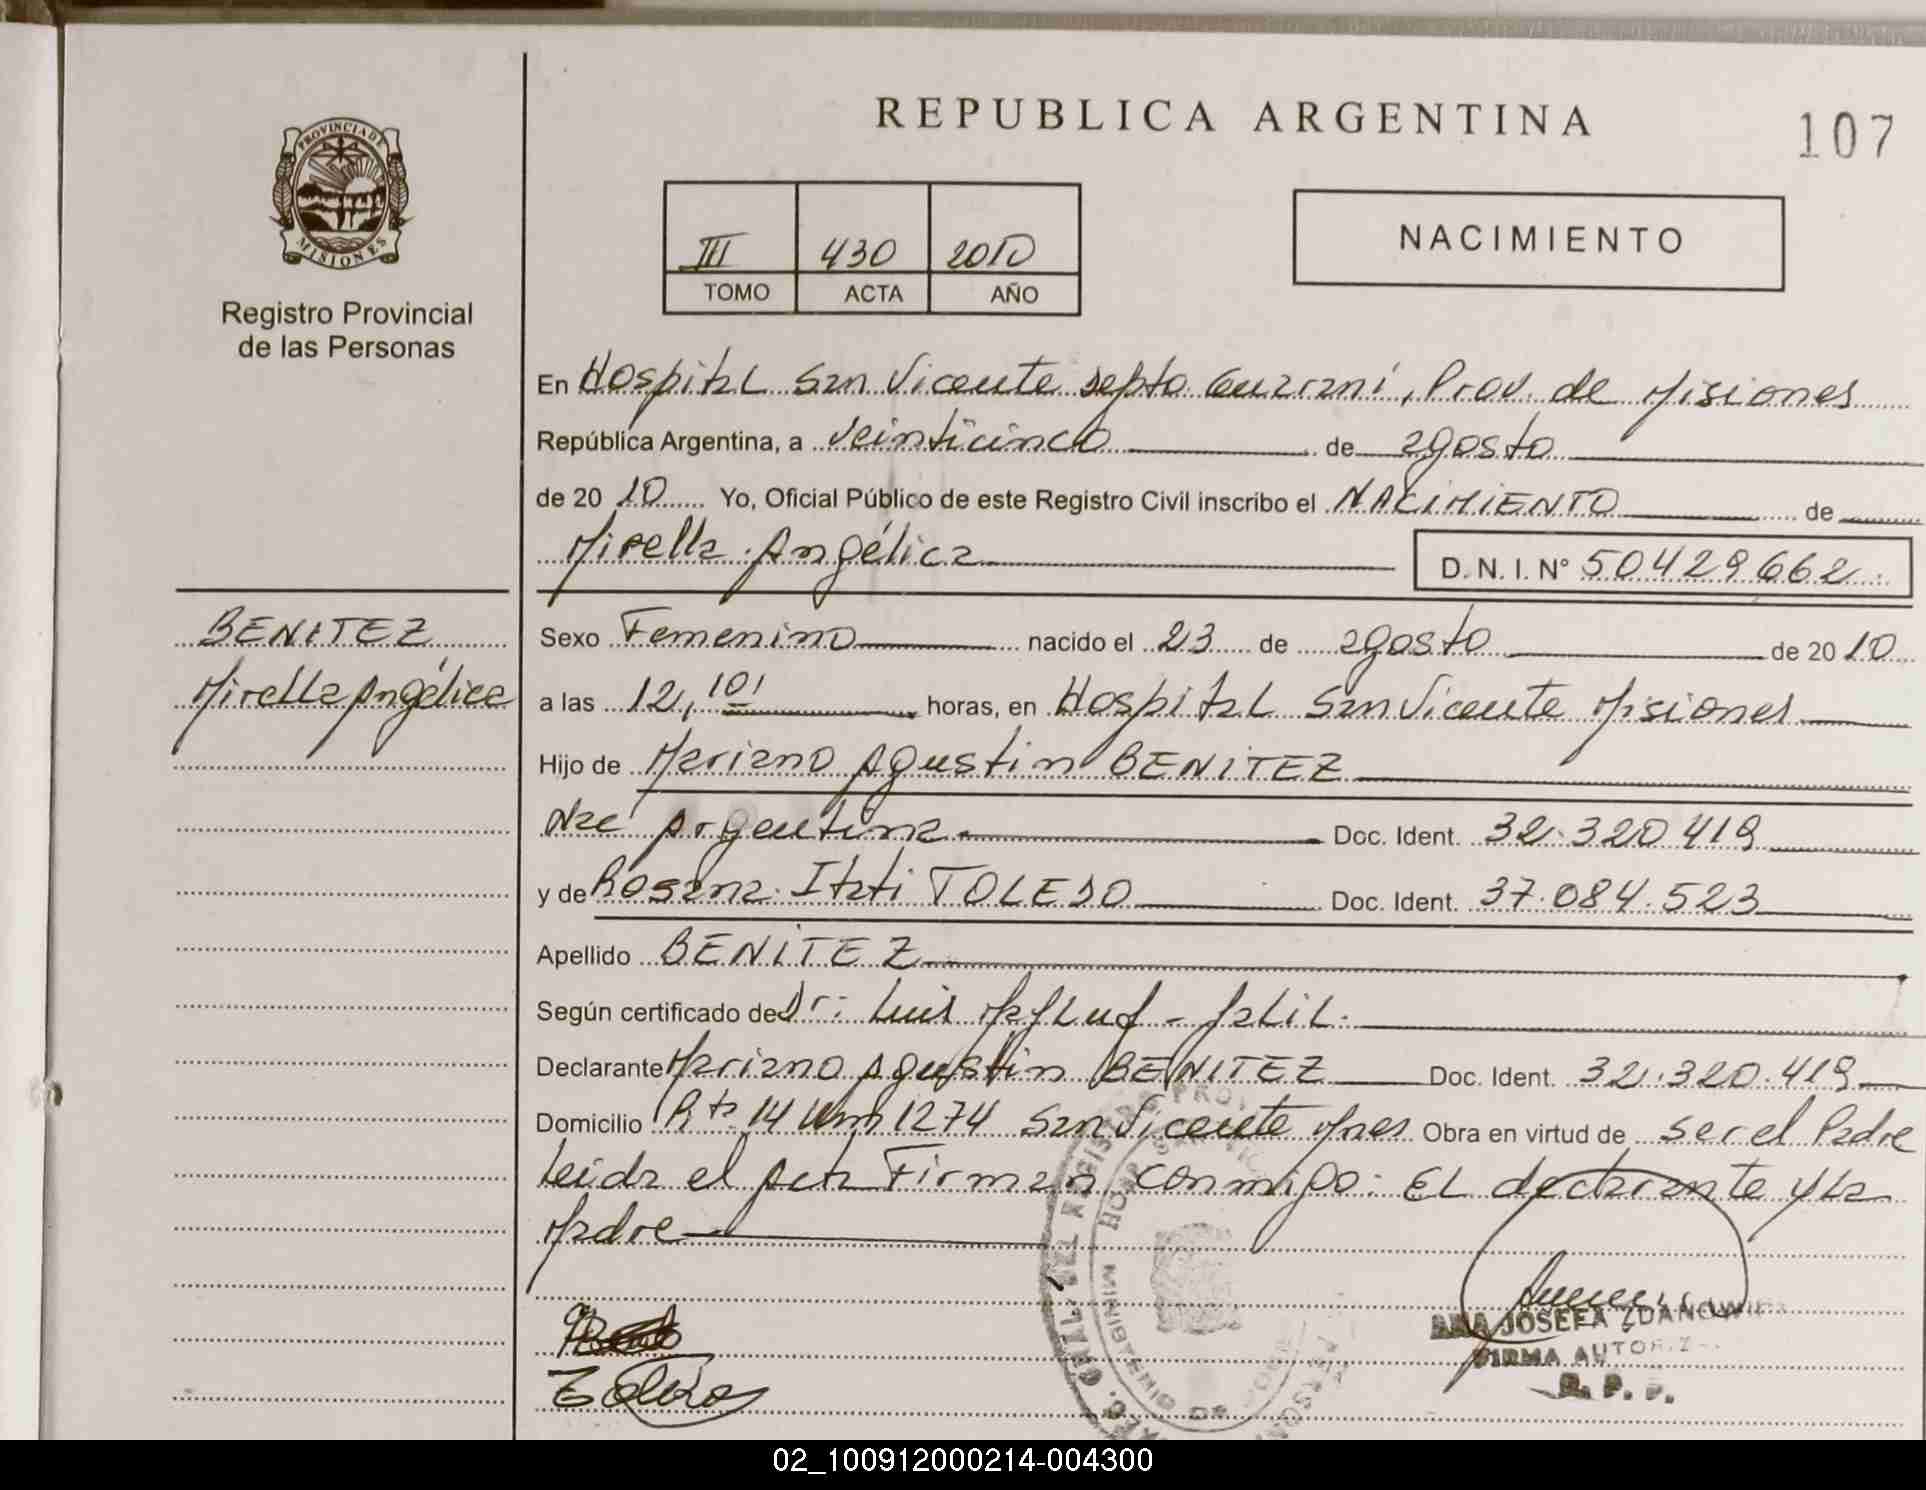 REPUBLICA ARGENTINA
107
PROVINCIA DE
MISIONES
Registro Provincial
de las Personas
III 430 2010
TOMO ACTA AÑO
NACIMIENTO
En Hospital San Vicente Depto Guaraní, Prov. de Misiones
República Argentina, a veinticinco de agosto
de 20 10 Yo, Oficial Público de este Registro Civil inscribo el NACIMIENTO de
Mirella Angélica D.N.I. N° 50429662
BENITEZ
Mirella Angélica
Sexo Femenino nacido el 23 de agosto de 20 10
a las 12,10' horas, en Hospital San Vicente Misiones
Hijo de Mariano Agustin BENITEZ
Nac Argentina Doc. Ident. 32.320.419
y de Rosana Itati TOLEDO Doc. Ident. 37.084.523
Apellido BENITEZ
Según certificado de Dr: Luis - Jalil.
Declarante Mariano Agustin BENITEZ Doc. Ident. 32.320.419
Domicilio Rta 14 Km 1274 San Vicente Mnes Obra en virtud de ser el Padre
Leida el Acta Firman conmigo: EL declarante y la
Madre
ANA JOSEFA
FIRMA
R. P. P.
02_100912000214-004300